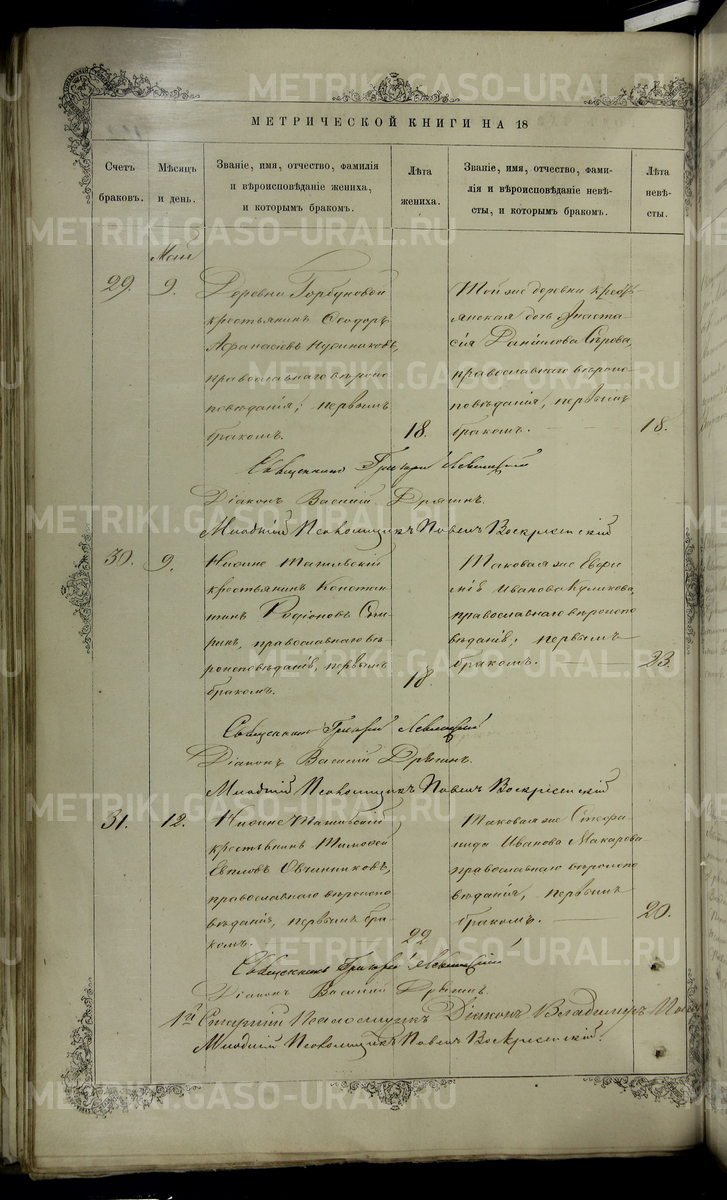 METRIKI.GASO-URAL.RU
МЕТРИЧЕСКОЙ КНИГИ НА 18
Счетъ браковъ.
Мѣсяцъ и день.
Званіе, имя, отчество, фамилія
и вѣроисповѣданіе жениха,
и которымъ бракомъ.
Лѣта жениха.
Званіе, имя, отчество, фами-
лія и вѣроисповѣданіе невѣ-
сты, и которымъ бракомъ.
Лѣта невѣ-
сты.
Май
29. 9.
Деревни Горбуновой
крестьянинъ Ѳеодоръ
Аѳанасіевъ
православнаго вѣроис
повѣданія, первымъ
бракомъ.
18.
Той же деревни кресть-
янская дочь Анаста-
сія Данилова Сѣрова,
православнаго вѣроис-
повѣданія, первымъ
бракомъ.
18.
Священникъ Григорій Левицкій
Діаконъ Василій
Младшій Псаломщикъ Павелъ Воскресенскій
30. 9.
Нижне Тагильскій
крестьянинъ Констан-
тинъ Родіоновъ
православнаго вѣ-
роисповѣданія, первымъ
бракомъ.
18.
Таковая же Евфи
мія Иванова Куликова,
православнаго вѣроиспо
вѣданія, первымъ
бракомъ.
23.
Священникъ Григорій Левицкій
Діаконъ Василій
Младшій Псаломщикъ Павелъ Воскресенскій
31. 12.
Нижне Тагильскій
крестьянинъ Тимоѳей
Овчинниковъ,
православнаго вѣроиспо
вѣданія, первымъ бра-
комъ.
22
Таковая же Стефа-
нида Иванова Макарова
православнаго вѣроиспо
вѣданія, первымъ
бракомъ.
20.
Священникъ Григорій Левицкій
Діаконъ Василій
1й Старшій Псаломщикъ Діаконъ Владиміръ
Младшій Псаломщикъ Павелъ Воскресенскій.